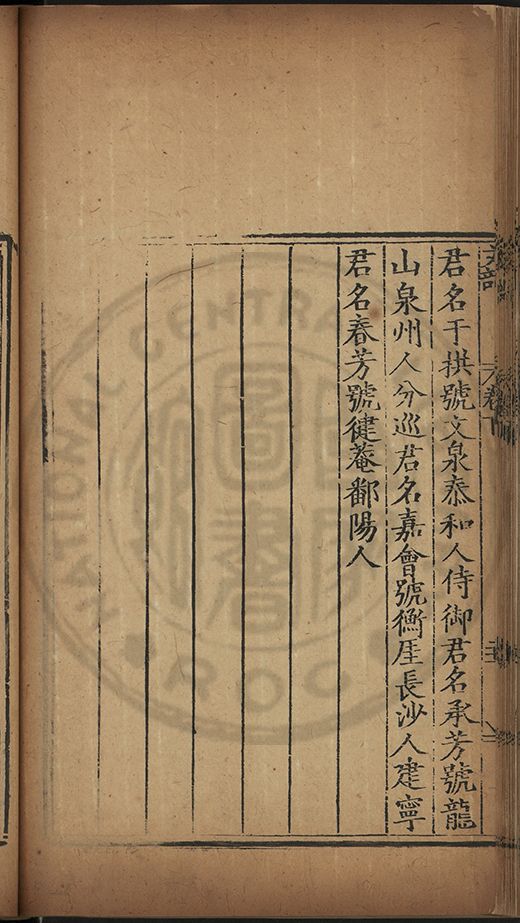 君名于拱號文泉泰和人侍御君名承芳號龍
山泉州人分巡君名嘉會號衡厓長沙人建寧
君名春芳號健菴鄱陽人